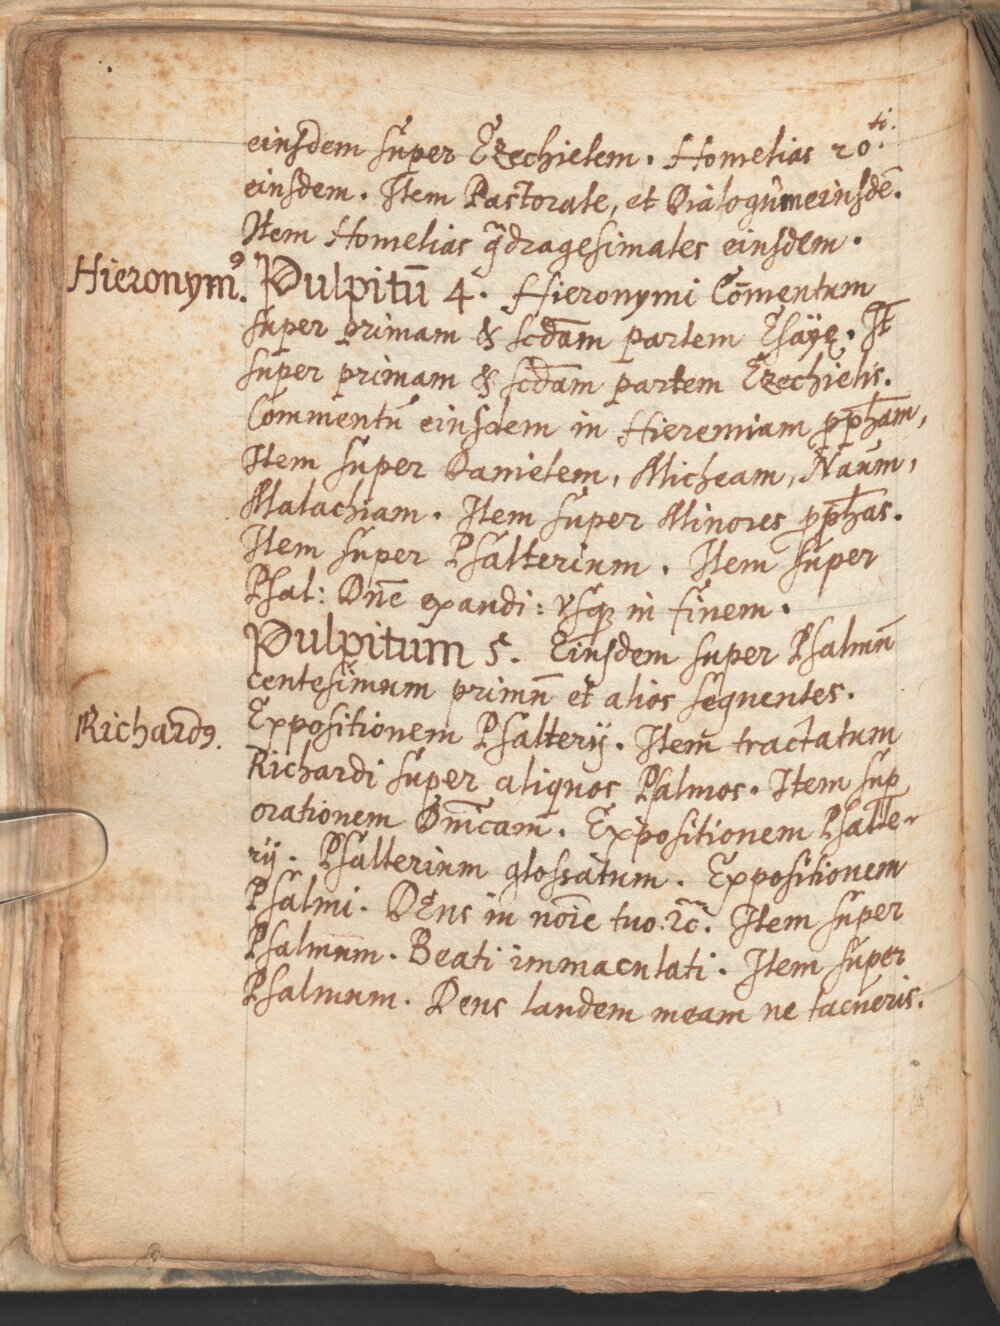 eiusdem super Ezechielem. Homelias 20.ti.
eiusdem. Item Pastorale, et Dialogûm eiusdē.
Item Homelias q̄dragesimales eiusdem.
Hieronym9. Pulpitū 4. Hieronymi Cōmentum
super primam & scdām partem Esaÿę. It̄
super primam & scdām partem Ezechielis.
Commentū eiusdem in Hieremiam pp̄ham,
Item super Danielem, Micheam, Naum,
Malachiam. Item super Minores pp̄has.
Item super Psalterium. Item super
Psal: Dn̄e exaudi: vsq3 in finem.
Pulpitum 5. Eiusdem super Psalmū
centesimum primū et alios sequentes.
Expositionem Psalterij. Item tractatum
Richard9. Richardi super aliquos Psalmos. Item sup̱
orationem Dn̄icam. Expositionem Psalte-
rij. Psalterium glossatum. Expositionem
Psalmi. DEus in noīe tuo. 2c̄. Item super
Psalmum. Beati immaculati. Item super
Psalmum. Deus laudem meam ne tacueris.